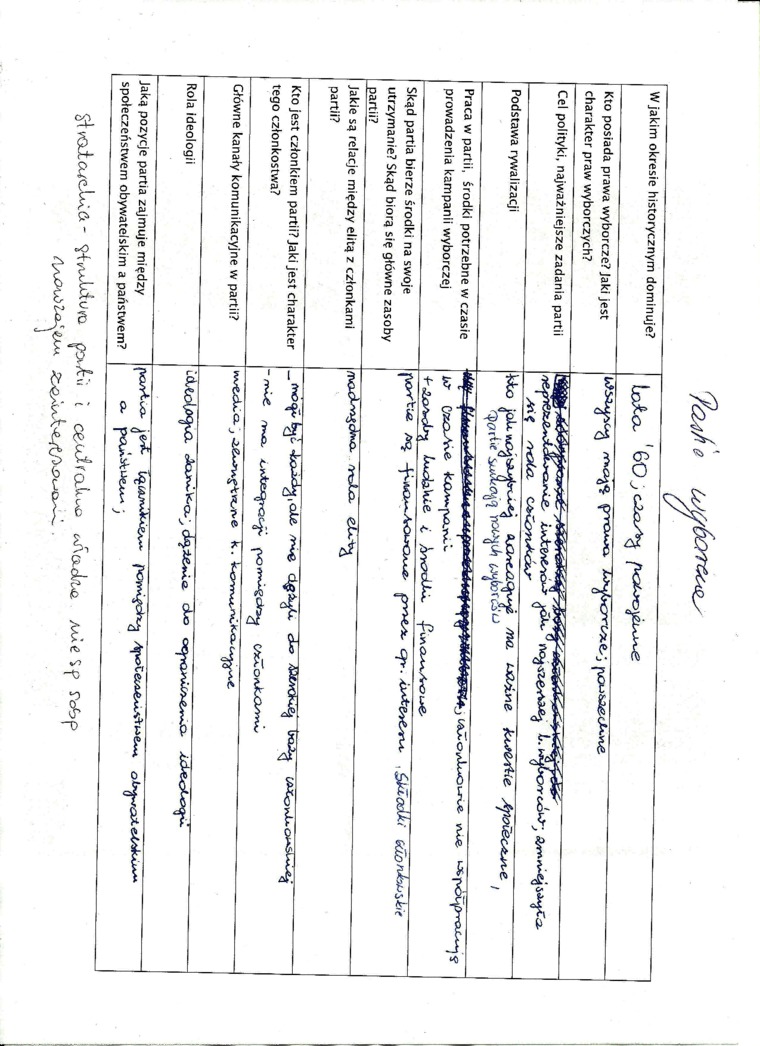 Partie wyborcze
W jakim okresie historycznym dominuje?
lata '60; czasy powojenne
Kto posiada prawa wyborcze? Jaki jest
charakter praw wyborczych?
wszyscy mają prawa wyborcze; powszechne
Cel polityki, najważniejsze zadania partii
reprezentowanie interesów jak najszerszej l. wyborców; zmniejszyła
się rola członków
Podstawa rywalizacji
kto jak najszybciej zareaguje na ważne kwestie społeczne,
partie szukają nowych wyborców
Praca w partii, środki potrzebne w czasie
prowadzenia kampanii wyborczej
członkowie nie współpracują
w czasie kampanii
+ zasoby ludzkie i środki finansowe
Skąd partia bierze środki na swoje
utrzymanie? Skąd biorą się główne zasoby
partii?
partie są finansowane przez gr. interesu, składki członkowskie
Jakie są relacje między elitą z członkami
partii?
nadrzędna rola elity
Kto jest członkiem partii? Jaki jest charakter
tego członkostwa?
- mógł być każdy, ale nie dążyli do szerokiej bazy członkowskiej
- nie ma integracji pomiędzy członkami
Główne kanały komunikacyjne w partii?
media; zewnętrzne k. komunikacyjne
Rola ideologii
ideologia zanika; dążenie do ograniczenia ideologii
Jaką pozycje partia zajmuje między
społeczeństwem obywatelskim a państwem?
partia jest łącznikiem pomiędzy społeczeństwem obywatelskim
a państwem;
stratarchia - struktura partii i centralna władza nie są sobą
nawzajem zainteresowani.